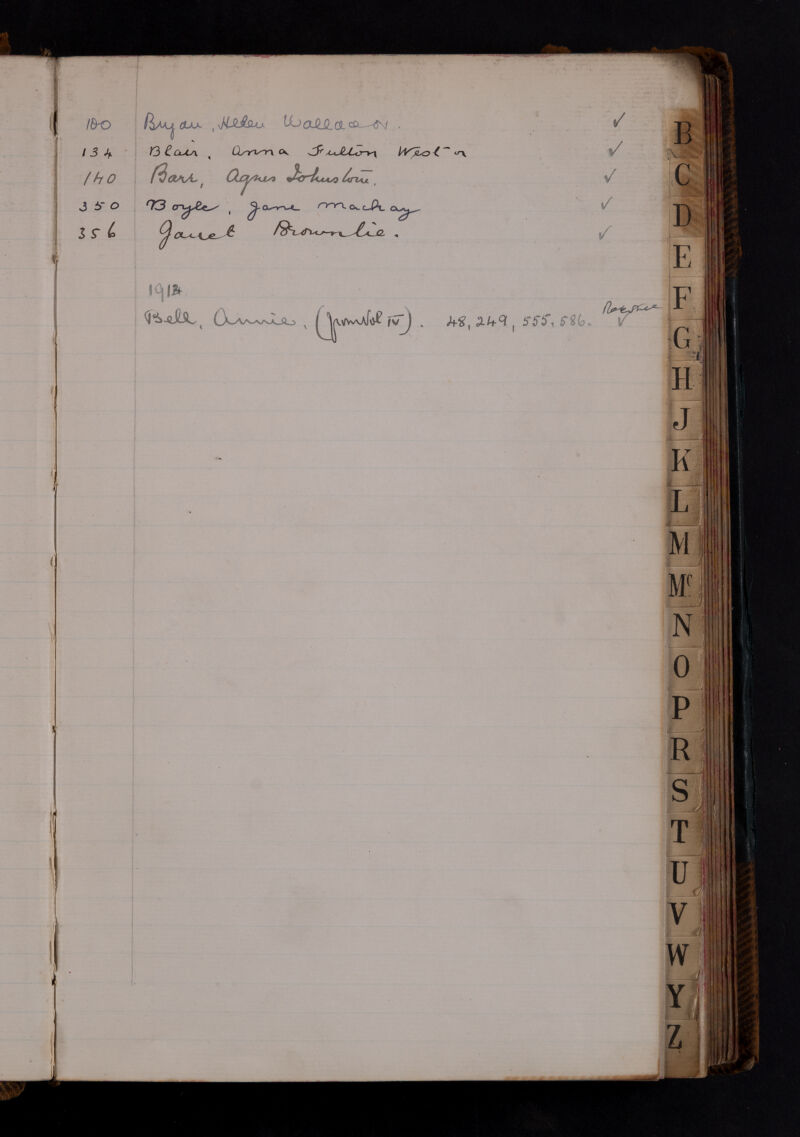 100 Bryan, Helen Wallace ✓
134 Blair, Anna Fulton ✓
140 Barr, Agnes Johnstone. ✓
350 Boyle, Jane Mackay ✓
356 Janet Brownlie. ✓
1912
Bell, Annie, (from Vol IV). 48, 249, 555, 586. ✓
B
C
D
E
F
G
H
J
K
L
M
Mc
N
O
P
R
S
T
U
V
W
Y
Z